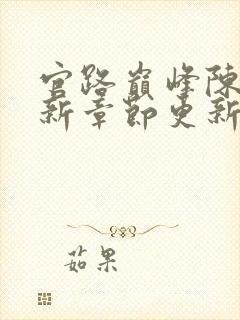 官路巅峰陈
新章节更新
茹果